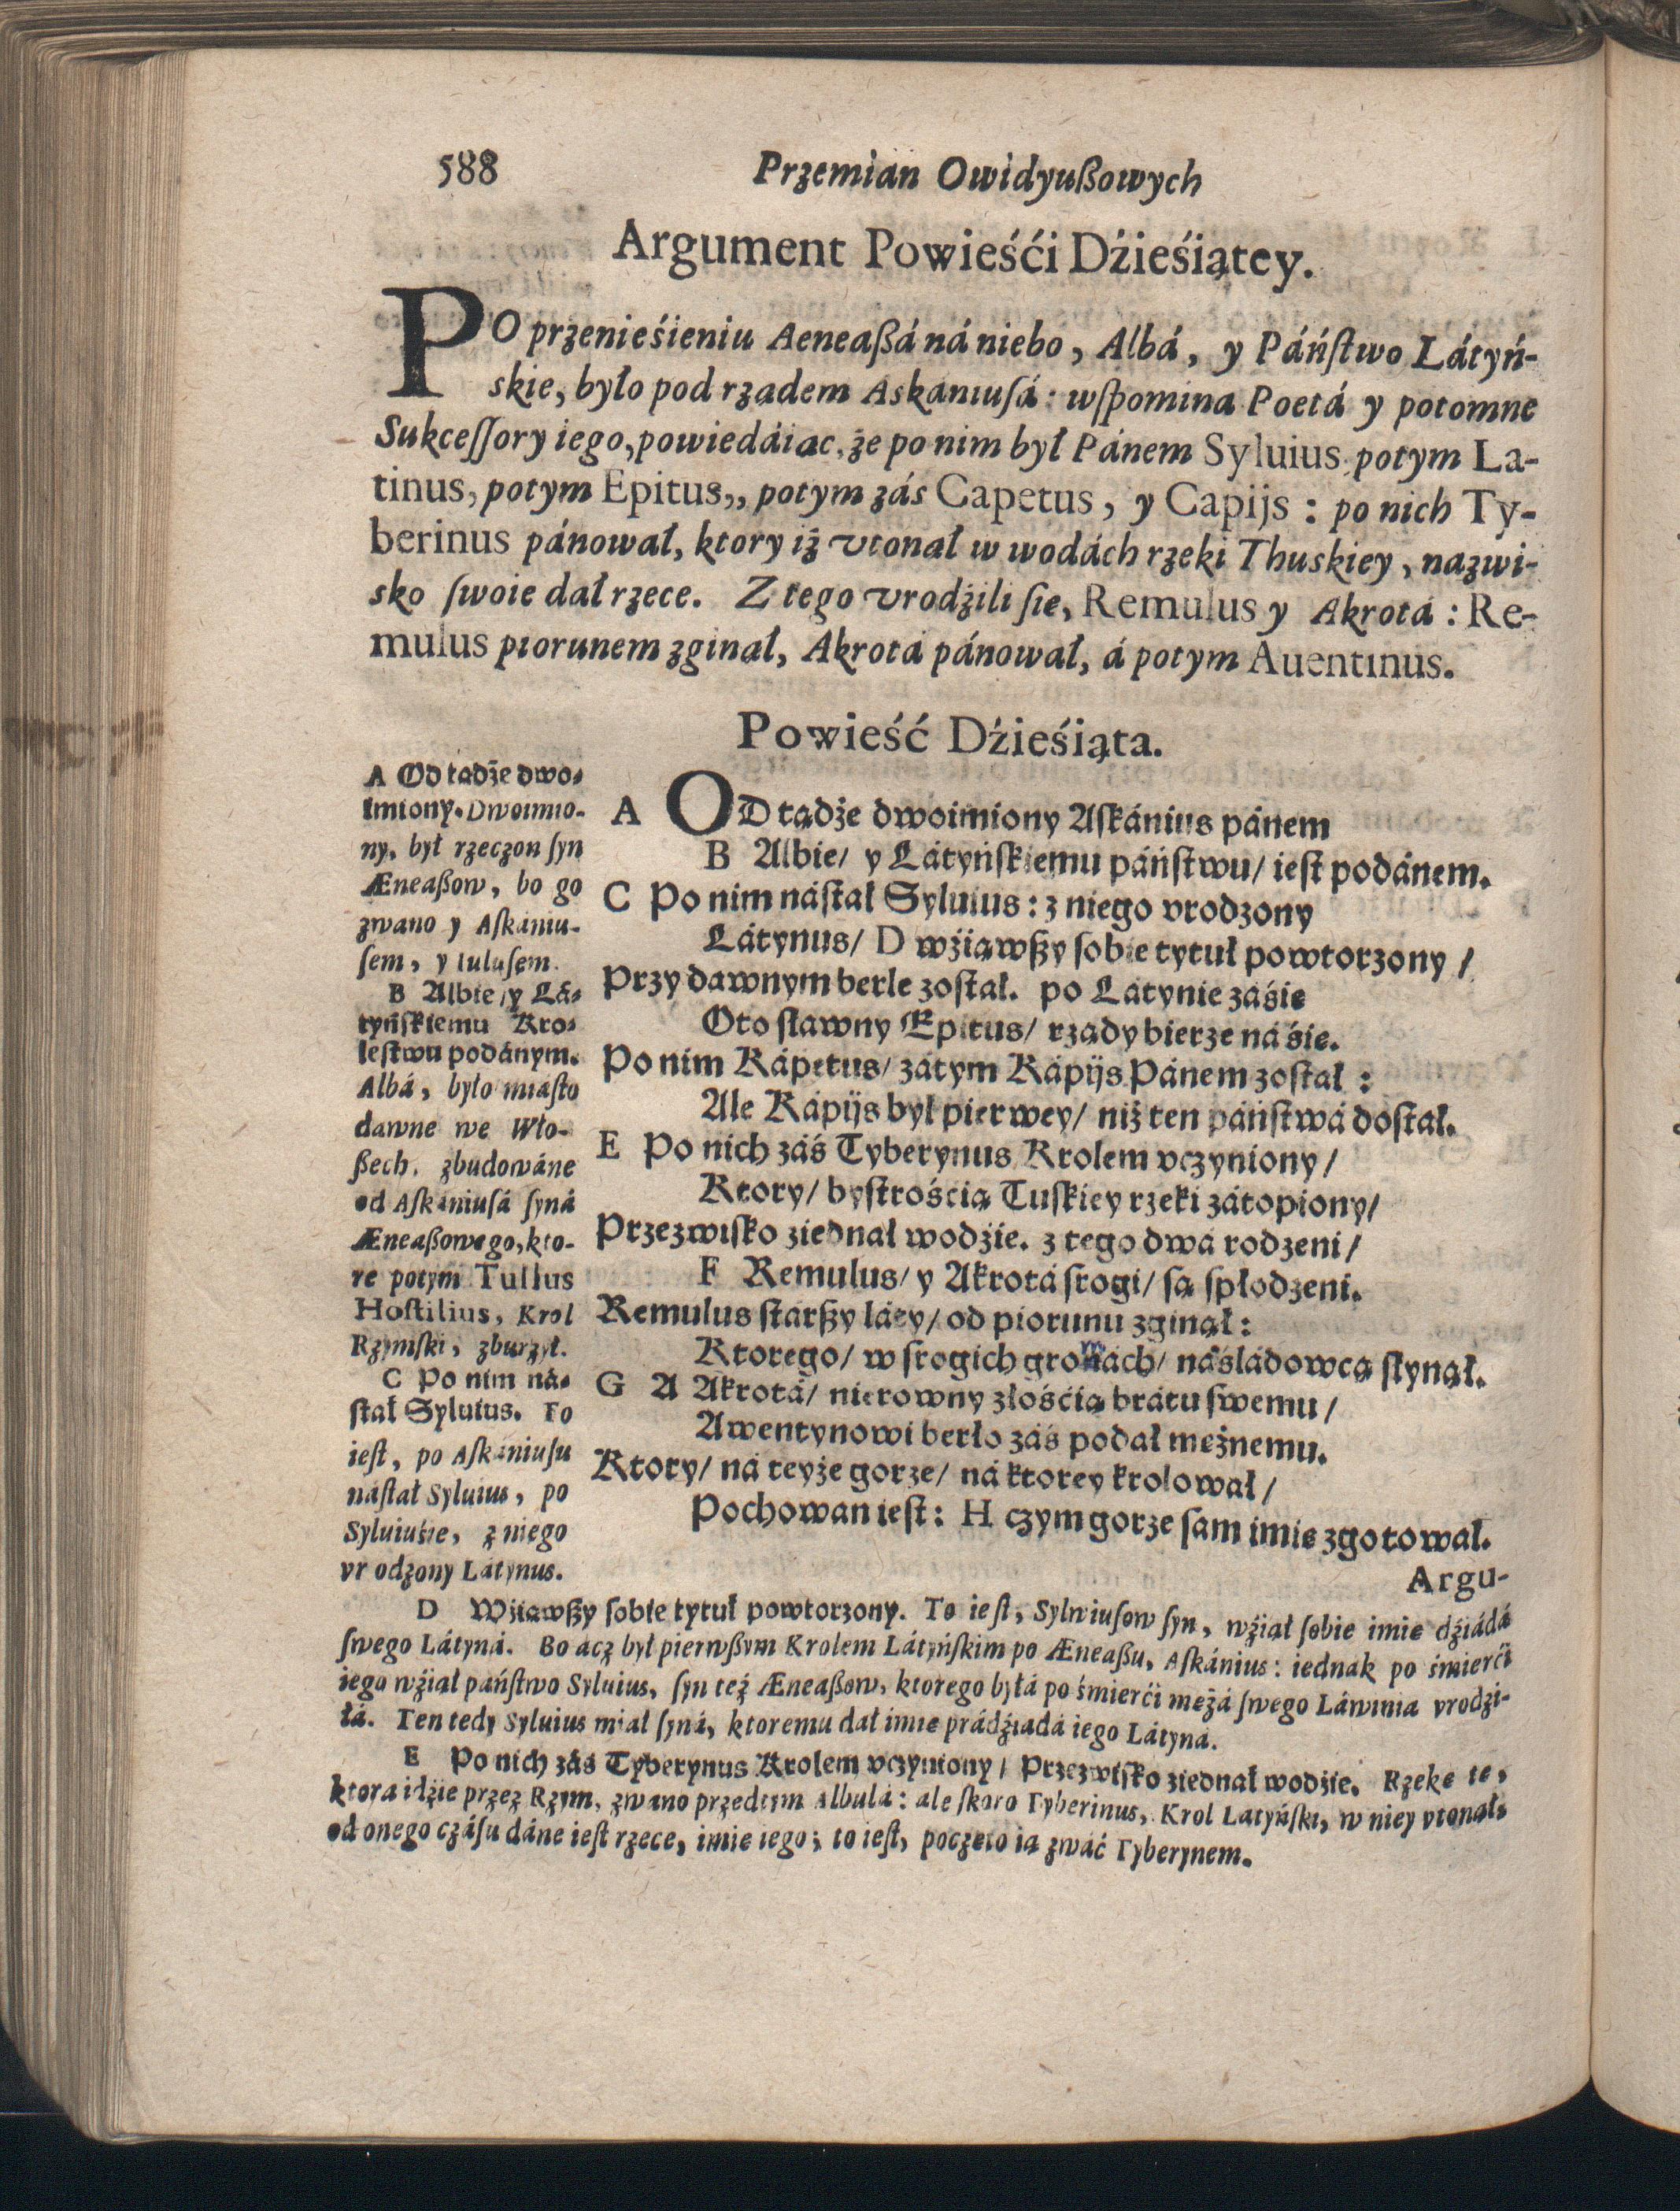 588 Przemian Owidyußowych
Argument Powieśći Dźieśiątey.
PO przenieśieniu Aeneaßá ná niebo, Albá, y Páńſtwo Látyń-
skie, było pod rządem Askaniuſá: wſpomina Poetá y potomne
Sukceſſory iego, powiedáiac, że po nim był Pánem Syluius potym La-
tinus, potym Epitus,, potym zás Capetus, y Capijs: po nich Ty-
berinus pánował, ktory iż vtonął w wodách rzeki Thuskiey, nazwi-
sko ſwoie dał rzece. Z tego vrodźili ſie, Remulus y Akrotá: Re-
mulus piorunem zginął, Akrotá pánował, á potym Auentinus.
Powieść Dźieśiąta.
A OD tądże dwoimiony Aſkánius pánem
B Albie/ y Látyńſkiemu páńſtwu/ ieſt podánem.
C Po nim náſtał Syluius: z niego vrodzony
Látynus/ D wźiąwßy ſobie tytuł powtorzony/
Przy dawnym berle zoſtał. po Látynie záśie
Oto ſławny Epitus/ rządy bierze ná śie.
Po nim Kápetus/ zátym Kápijs Pánem zoſtał:
Ale Kápijs był pierwey/ niż ten páńſtwá doſtał.
E Po nich záś Tyberynus Krolem vczyniony/
Ktory/ byſtrośćią Tuſkiey rzeki zátopiony/
Przezwiſko ziednał wodźie. z tego dwá rodzeni/
F Remulus/ y Akrotá ſrogi/ są ſpłodzeni.
Remulus ſtárßy láty/ od piorunu zginął:
Ktorego/ w ſrogich gromách/ náśládowcą ſłynął.
G A Akrotá/ nierowny złośćią brátu ſwemu/
Awentynowi berło záś podał mężnemu.
Ktory/ ná teyże gorze/ ná ktorey krolował/
Pochowan ieſt: H czym gorze ſam imie zgotował.
Argu-
A Od tądże dwo-
imiony. Dwoimio-
ny, był rzeczon ſyn
Æneaßow, bo go
zwano y Aſkániu-
ſem, y Iuluſem.
B Albie/ y Lá-
tyńſkiemu Kro-
leſtwu podánym.
Albá, było miáſto
dawne we Wło-
ßech, zbudowáne
od Aſkániuſá ſyná
Æneaßowego, kto-
re potym Tullus
Hoſtilius, Krol
Rzymſki, zburzył.
C Po nim ná-
ſtał Syluius. To
ieſt, po Aſkániuſu
náſtał Syluius, po
Syluiuśie, z niego
vrodzony Látynus.
D Wźiąwßy ſobie tytuł powtorzony. To ieſt, Sylwiuſow ſyn, wźiął ſobie imie dźiádá
ſwego Látyná. Bo acz był pierwßym Krolem Látyńſkim po Æneaßu, Aſkánius: iednak po śmierći
iego wźiął páńſtwo Syluius, ſyn też Æneaßow, ktorego byłá po śmierći mężá ſwego Láwinia vrodźi-
łá. Ten tedy Syluius miał ſyná, ktoremu dał imie prádźiadá iego Látyná.
E Po nich záś Tyberynus Krolem vczyniony/ Przezwiſko ziednał wodźie. Rzekę tę,
ktora idźie przez Rzym, zwano przedtym Albulá: ale ſkoro Tyberinus, Krol Latyńſki, w niey vtonął,
od onego czáſu dáne ieſt rzece, imie iego; to ieſt, poczęto ią zwáć Tyberynem.